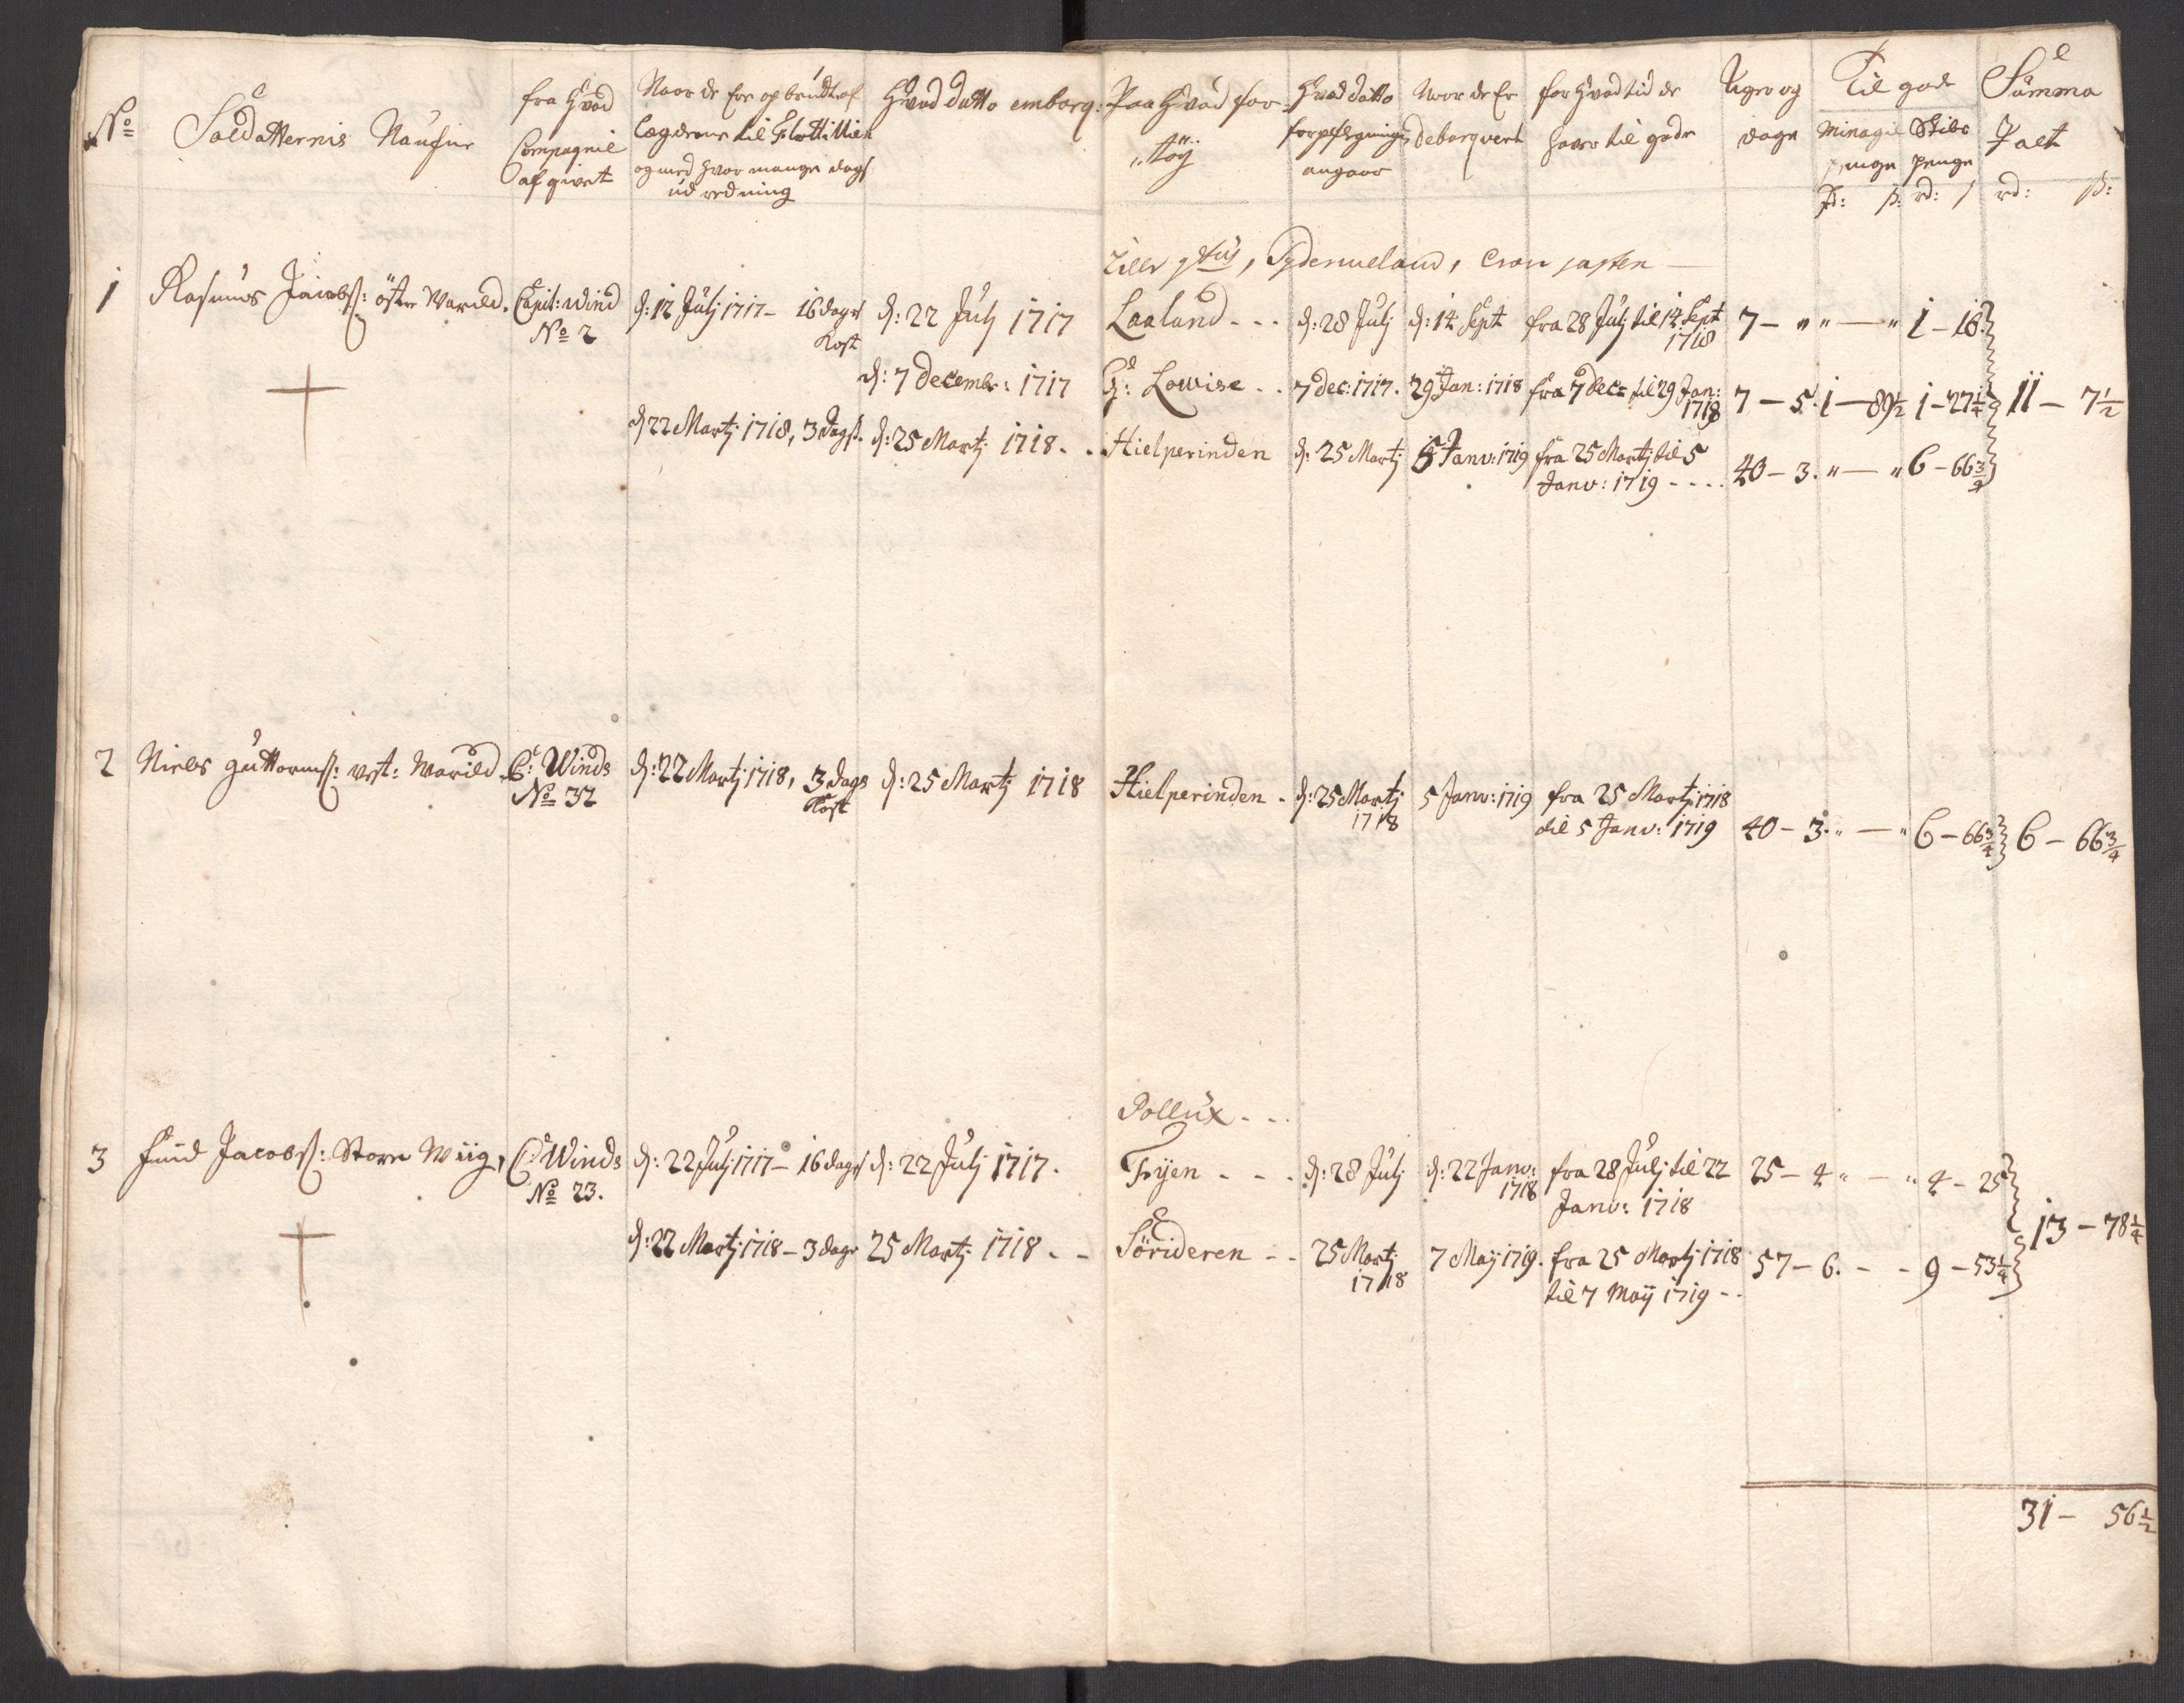 No
Soldatternis Naufne
fra hvad
Compagnie
af givet
Naar de Ere opbrudt af
Lægderne til Flottillien
og med hvor mange dags
ud redning
Hvad datto embarq:
Paa hvad far
tøÿ
Hvad datto
forpflegning
angaar
Naar de Er
debarqvert
for hvad tid de
haver til gode
Uger og
dage
Til gode
Minagie penge
Skibs penge
rd: ß: rd: ß
Summa
Talt
rd: ß:
Tydemeland, Cron
1 Rasmus Jacobß: östre Warild. Capit: Wind
No 2
d: 12 Julj 1717 - 16 dags
Kost
d: 22 Julj 1717
Laaland - - - d: 28 Julj d: 14 Sept fra 28 Julj til 14 Sept
1718
7 - " " — " 1 - 16
d: 7 Decembr: 1717
G: Lowise - - 7 Dec: 1717. 29 Jan: 1718 fra 7 Dec= til 29 Jan:
1718
7 - 5. 1 - 89½ 1 - 27¼ 11 - 7½
d 22 Martj 1718, 3 dags. d: 25 Martj 1718 - -
Hielperinden d: 25 Martj 5 Janv: 1719 fra 25 Martj til 5
Janv: 1719 - - - -
40 - 3. " — " 6 - 66¾
2 Niels Guttormß: vest: Warild. C: Winds
No 32
d: 22 Martj 1718, 3 dags
Kost
d: 25 Martj 1718
Hielperinden - d: 25 Martj
1718
5 Janv: 1719 fra 25 Martj 1718
til 5 Janv: 1719
40 - 3. " — " 6 - 66¾ 6 - 66¾
Pollux - - -
3 Jacobß: Store Wiig, C Winds
No 23.
d: 22 Julj 1717 - 16 dags d: 22 Julj 1717.
Fyen - - - d: 28 Julj d: 22 Janv:
1718
fra 28 Julj til 22
Janv: 1718
25 - 4 " — " 4 - 25
13 - 78¼
d: 22 Martj 1718 - 3 dage 25 Martj 1718 - -
Söríderen - - 25 Martj
1718
7 Maj 1719. fra 25 Martj 1718
til 7 Maij 1719 - -
57 - 6. - - 9 - 53¼
31 - 56½